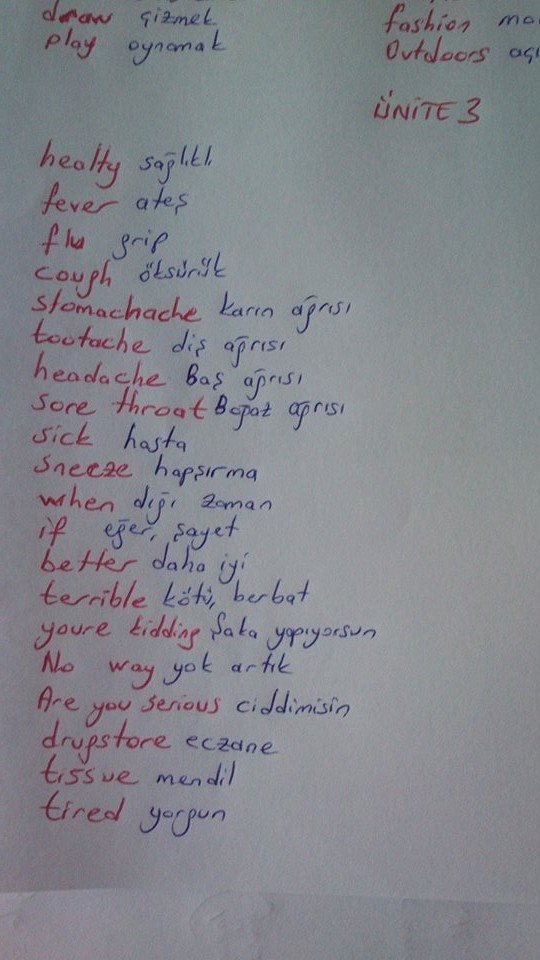 draw çizmek
play oynamak
fashion
Outdoors
ÜNİTE 3
healty sağlıklı
fever ateş
flu grip
cough öksürük
stomachache karın ağrısı
tootache diş ağrısı
headache Baş ağrısı
sore throat Boğaz ağrısı
sick hasta
sneeze hapşırma
when dığı zaman
if eğer, şayet
better daha iyi
terrible kötü, berbat
youre kidding Şaka yapıyorsun
No way yok artık
Are you serious ciddimisin
drugstore eczane
tissue mendil
tired yorgun